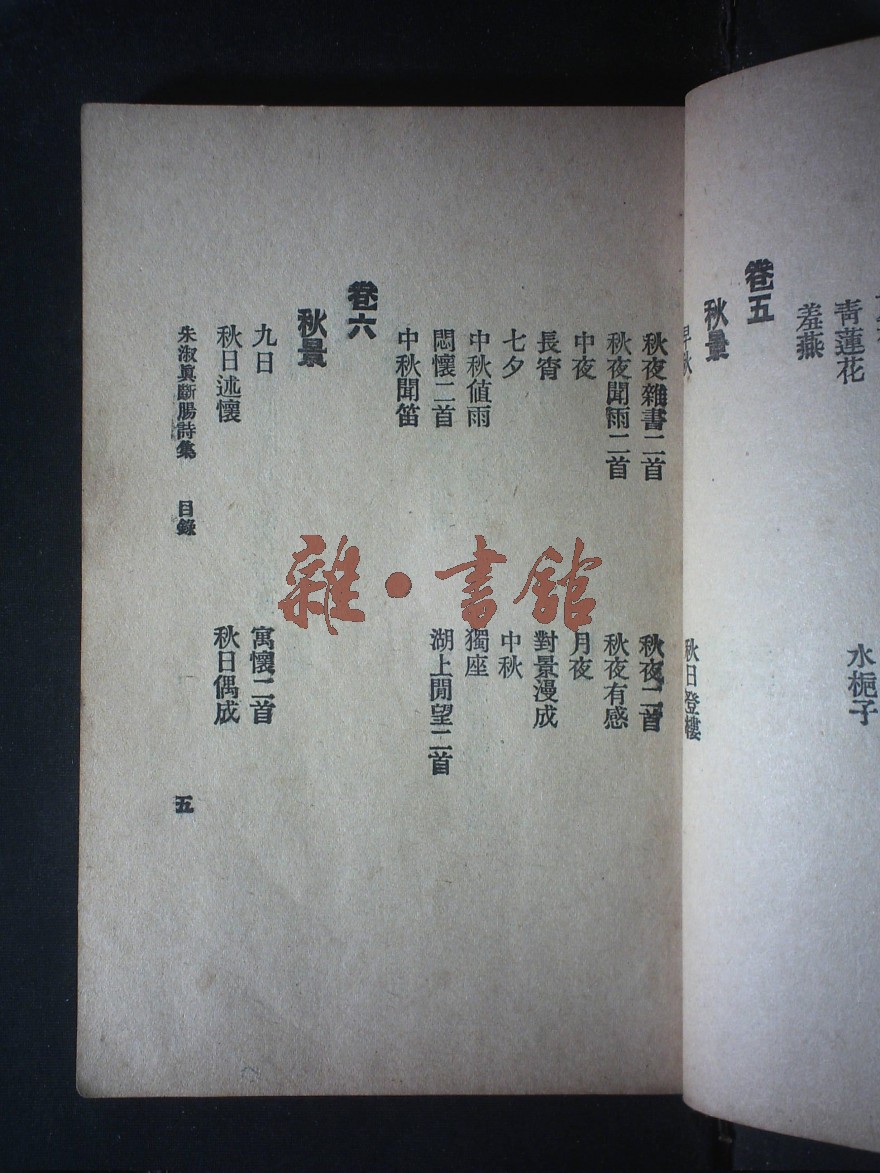 青蓮花
羞燕　水梔子
卷五
秋景
早秋　秋日登樓
秋夜雜書二首　秋夜二首
秋夜聞雨二首　秋夜有感
中夜　月夜
長宵　對景漫成
七夕　中秋
中秋值雨　獨座
悶懷二首　湖上閒望二首
中秋聞笛
卷六
秋景
九日　寓懷二首
秋日述懷　秋日偶成
朱淑眞斷腸詩集　目錄　五
雜·書館